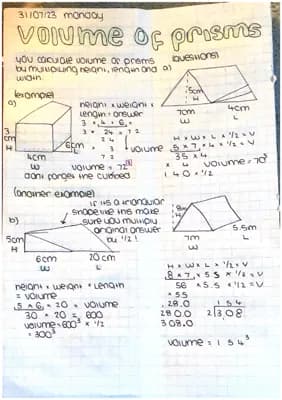 31/07/23 monday
VOLUME OF PRISMS
you calculate volume of prisms
by multiplying height, length and
width.
(example)
a)
3
cm
H
4cm
W
6cm
L
height x weight x
length = answer
3 x 4 x 6 =
3 x 24 = 72
24
24
24
72
volume
volume = 72³
dont forget the cubed
(another example)
if its a triangular
shape like this make
sure you multiply
original answer
by 1/2!
b)
5cm
H
6cm
W
20cm
L
height x weight x length
= volume
5 x 6 = 30 x 20 = volume
30 x 20 = 600
volume = 600³ x 1/2
= 300³
(questions!)
a)
5cm
H
7cm
W
4cm
L
H x W x L x 1/2 = V
5 x 7, x 4 x 1/2 = V
35 x 4
x 4
140 x 1/2
volume = 70³
8m
H
7m
W
5.5m
L
H x W x L x 1/2 = V
8 x 7 x 5.5 x 1/2 = V
56 x 5.5 x 1/2 = V
x 5.5
28.0
280.0
308.0
154
2 3108
volume = 154³